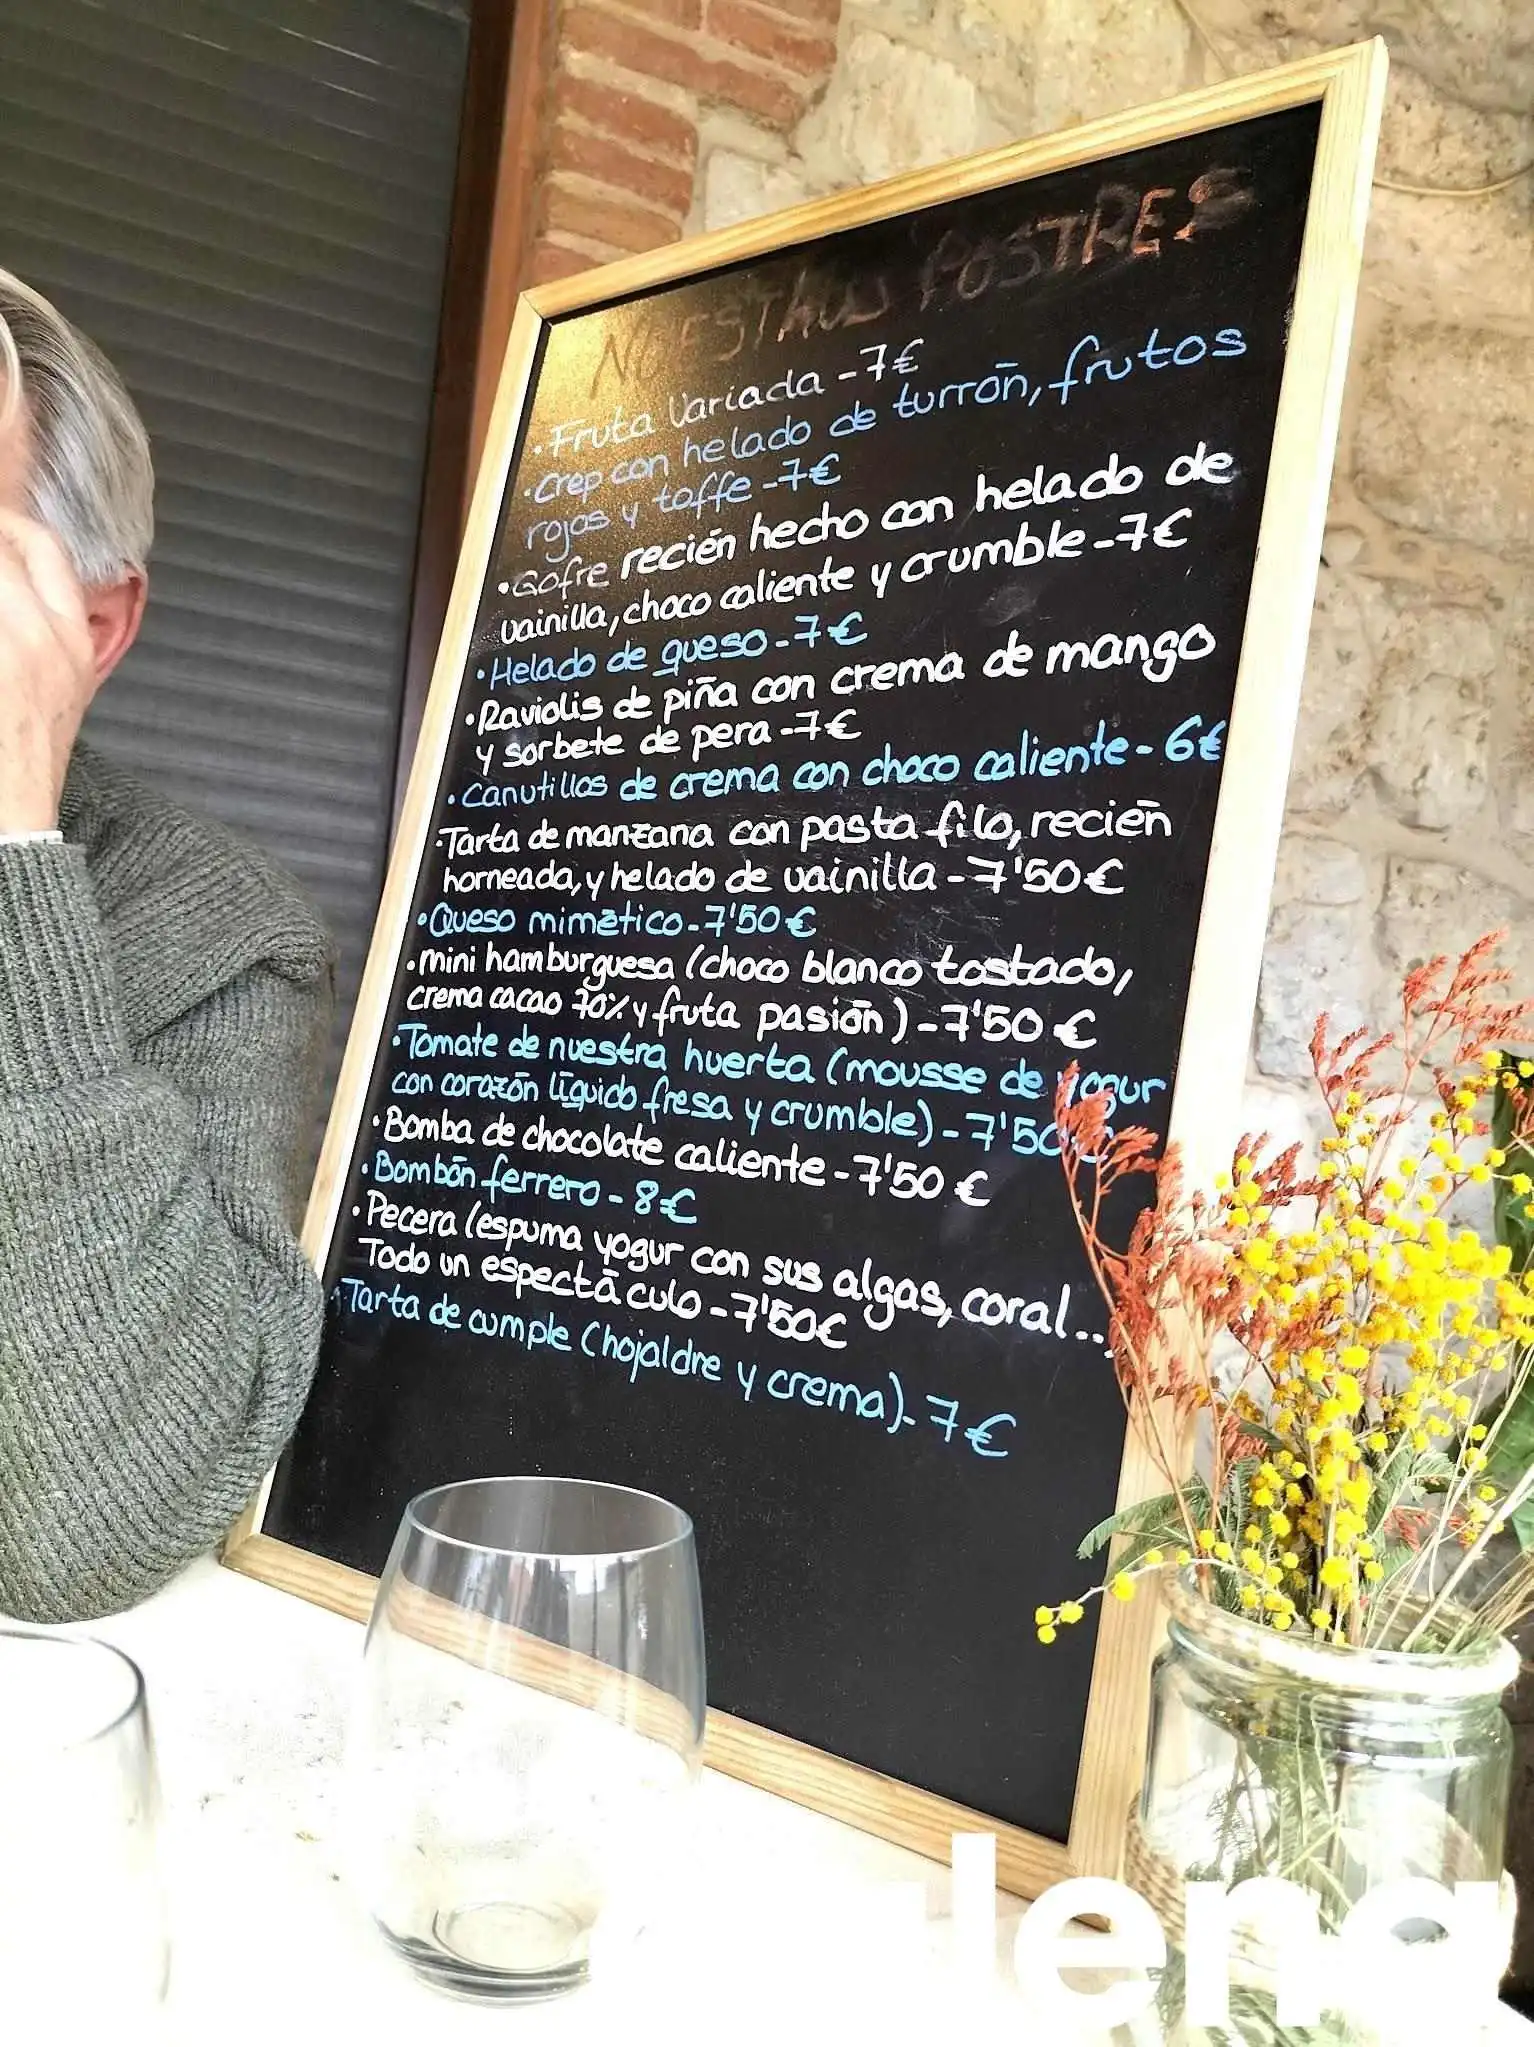 NUESTROS POSTRES
·Fruta Variada -7€
·Crep con helado de turrón, frutos
rojos y toffe -7€
·Gofre recién hecho con helado de
vainilla, choco caliente y crumble -7€
·Helado de queso -7€
·Raviolis de piña con crema de mango
y sorbete de pera -7€
·Canutillos de crema con choco caliente - 6€
·Tarta de manzana con pasta filo, recién
horneada, y helado de vainilla -7'50€
·Queso mimético -7'50€
·mini hamburguesa (choco blanco tostado,
crema cacao 70% y fruta pasión) -7'50€
·Tomate de nuestra huerta (mousse de yogur
con corazón líquido fresa y crumble) -7'50€
·Bomba de chocolate caliente -7'50€
·Bombón ferrero - 8€
·Pecera (espuma yogur con sus algas, coral...
Todo un espectáculo -7'50€
·Tarta de cumple (hojaldre y crema). 7€